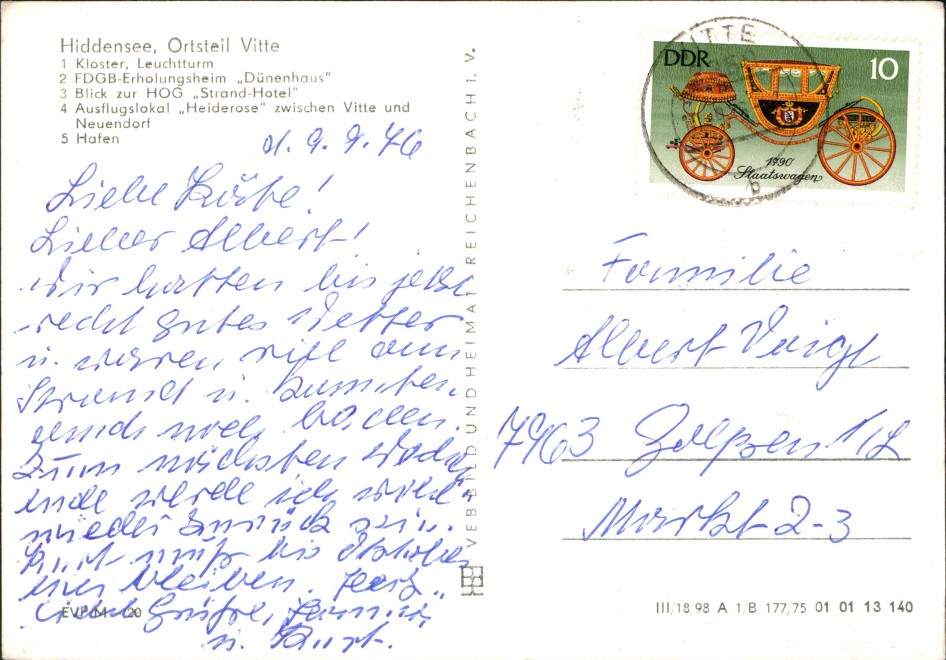 Hiddensee, Ortsteil Vitte
1 Kloster, Leuchtturm
2 FDGB-Erholungsheim „Dünenhaus"
3 Blick zur HOG „Strand-Hotel"
4 Ausflugslokal „Heiderose" zwischen Vitte und
Neuendorf
5 Hafen
d. 9.9.76
Liebe Käthe!
Lieber Albert!
Wir hatten bis jetzt
recht gutes Wetter
u. waren viel am
Strand u. konnten
auch noch baden.
Zum nächsten Wochen
ende werde ich wohl
wieder zurück sein.
Kurt muß bis Oktober
hier bleiben. Herz„
liche Grüße,
u. Kurt.
EVP M -,20
VEB BILD UND HEIMAT REICHENBACH I. V.
VITTE
b
DDR
10
1790
Staatswagen
Familie
Albert Voigt
7963 Golßen 1/L
Markt 2-3
III/18 98 A 1/B 177/75 01 01 13 140